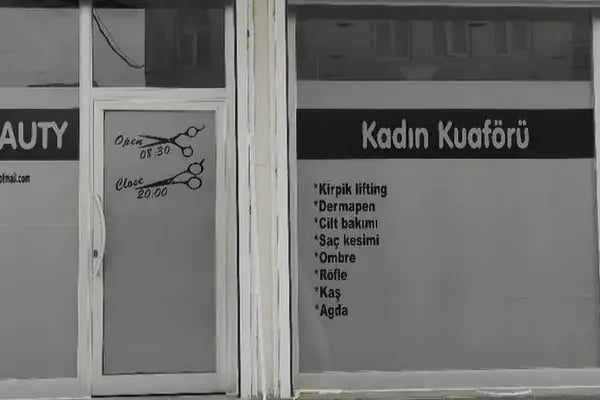 AUTY
otmail.com
Open
08:30
Close
20:00
Kadın Kuaförü
*Kirpik lifting
*Dermapen
*Cilt bakımı
*Saç kesimi
*Ombre
*Röfle
*Kaş
*Agda